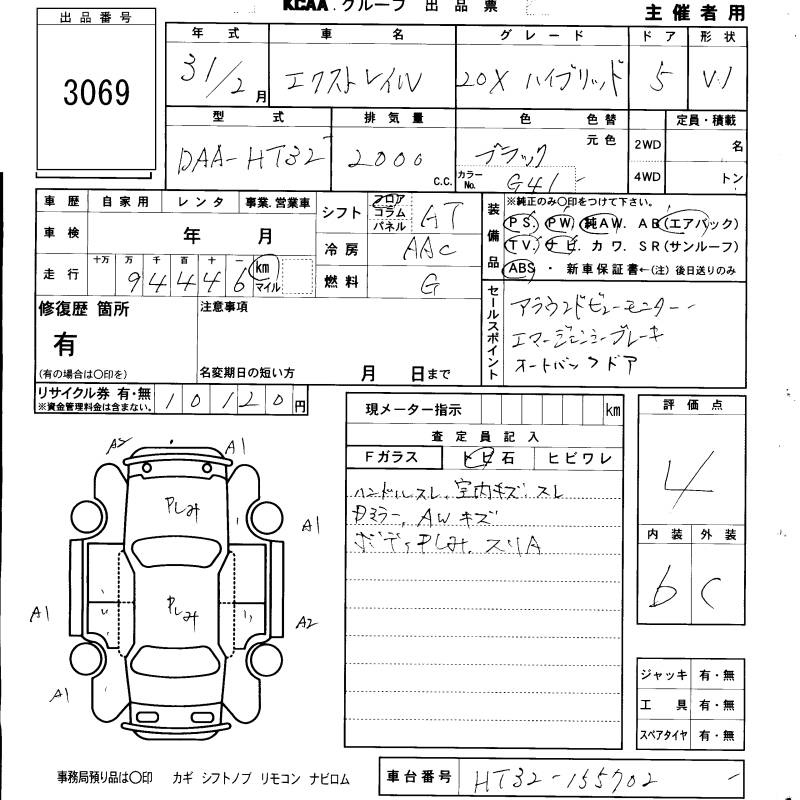 KCAA グループ 出品票
主催者用
出品番号
3069
年式 車名 グレード ドア 形状
31/2月 エクストレイル 20X ハイブリッド 5 V.1
型式 排気量 色 色替 定員・積載
DAA-HT32 2000 C.C. ブラック 元色 2WD 名
カラーNo. G41 4WD トン
車歴 自家用 レンタ 事業.営業車
シフト フロア コラム パネル AT
車検 年 月
冷房 AAC
走行 十万 万 千 百 十 一 km マイル
94446
燃料 G
装備品
※純正のみ〇印をつけて下さい。
PS. PW. 純AW. AB(エアバック)
TV. ナビ. カワ. SR(サンルーフ)
ABS ・ 新車保証書←(注) 後日送りのみ
修復歴 箇所
有
(有の場合は〇印を)
注意事項
名変期日の短い方 月 日まで
セールスポイント
アラウンドビューモニター
エマージェンシーブレーキ
オートバックドア
リサイクル券 有・無
※資金管理料金は含まない。
10120円
現メーター指示 km
査定員記入
Fガラス トビ石 ヒビワレ
ハンドルスレ、室内キズ、スレ
Dミラー、AWキズ
ボディ凹しみ、スリA
評価点
4
内装 外装
b C
A2 A1
凹しみ
A1
凹しみ
A1 A2
A1
ジャッキ 有・無
工具 有・無
スペアタイヤ 有・無
事務局預り品は〇印 カギ シフトノブ リモコン ナビロム
車台番号 HT32-155702